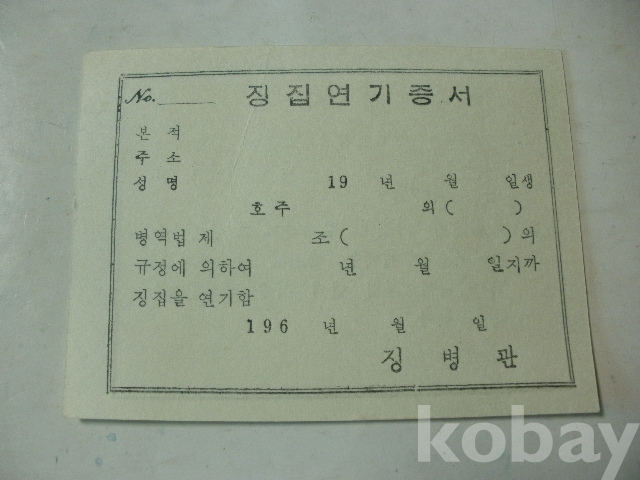 No. 징집연기증서
본 적
주 소
성 명 19 년 월 일생
호주 의( )
병역법 제 조( )의
규정에 의하여 년 월 일지까
징집을 연기함
196 년 월 일
징 병 관
kobay